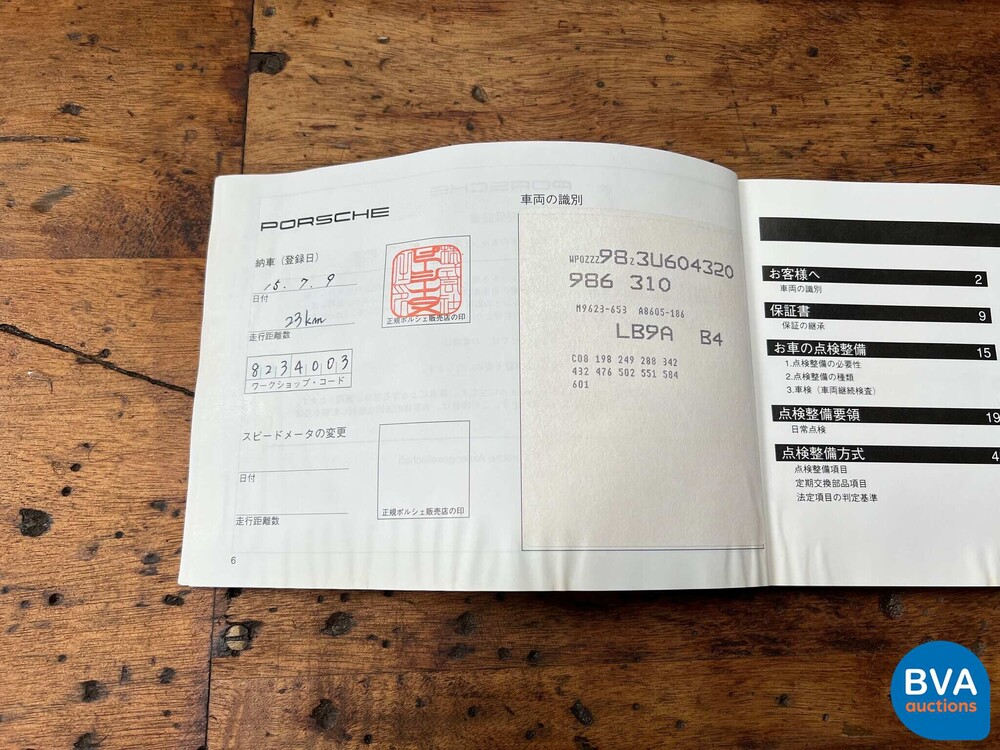 PORSCHE
納車（登録日）
15. 7. 9
日付
23km
走行距離数
正規ポルシェ販売店の印
8234003
ワークショップ・コード
スピードメータの変更
日付
走行距離数
正規ポルシェ販売店の印
6
車両の識別
WP0ZZZ98z3U604320
986 310
M9623-653 A8605-186
LB9A B4
C08 198 249 288 342
432 476 502 551 584
601
お客様へ 2
車両の識別
保証書 9
保証の継承
お車の点検整備 15
1.点検整備の必要性
2.点検整備の種類
3.車検（車両継続検査）
点検整備要領 19
日常点検
点検整備方式 4
点検整備項目
定期交換部品項目
法定項目の判定基準
BVA
auctions